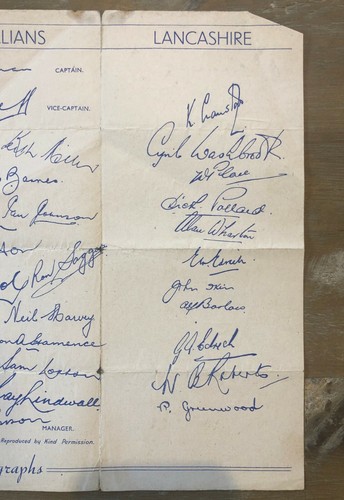 LIANS
LANCASHIRE
CAPTAIN.
VICE-CAPTAIN.
K Cranston
Keith Miller
Cyril Washbrook.
W Place
Barnes.
Ian Johnson
Dick. Pollard.
Alan Wharton
Ron Saggers
John Ikin
Neil Harvey
A Barlow
G A Edrich
Sam Loxton
W B Roberts.
Ray Lindwall
P. Greenwood
MANAGER.
Reproduced by Kind Permission.
graphs